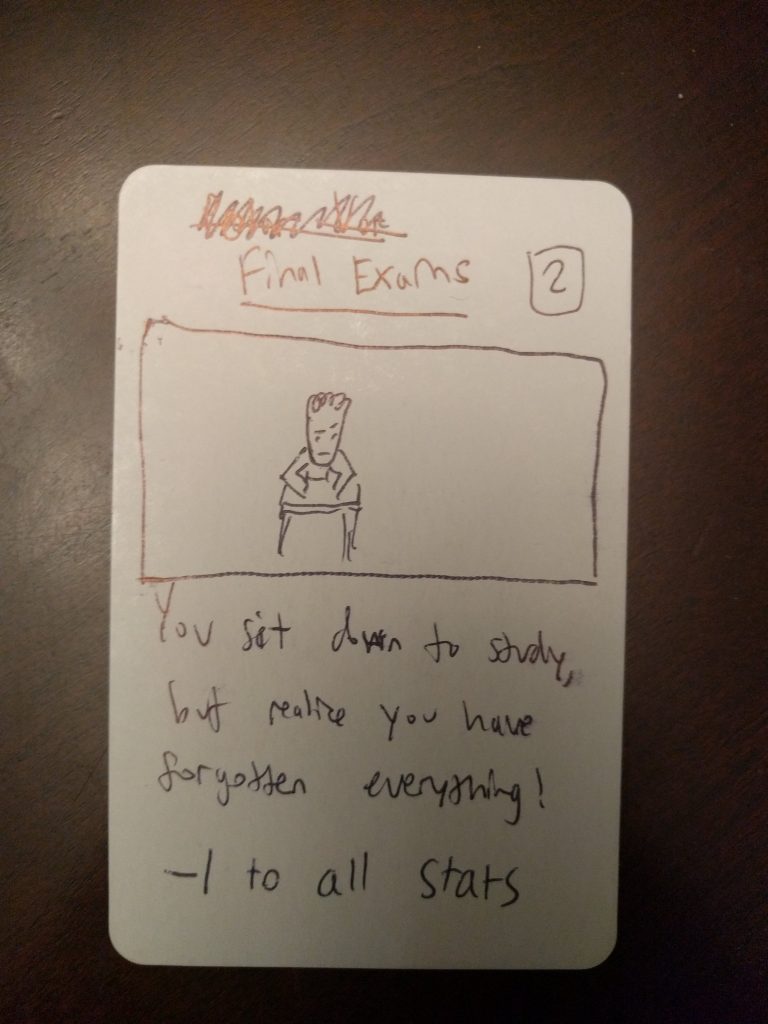 Final Exams
2
You sit down to study,
but realize you have
forgotten everything!
-1 to all stats